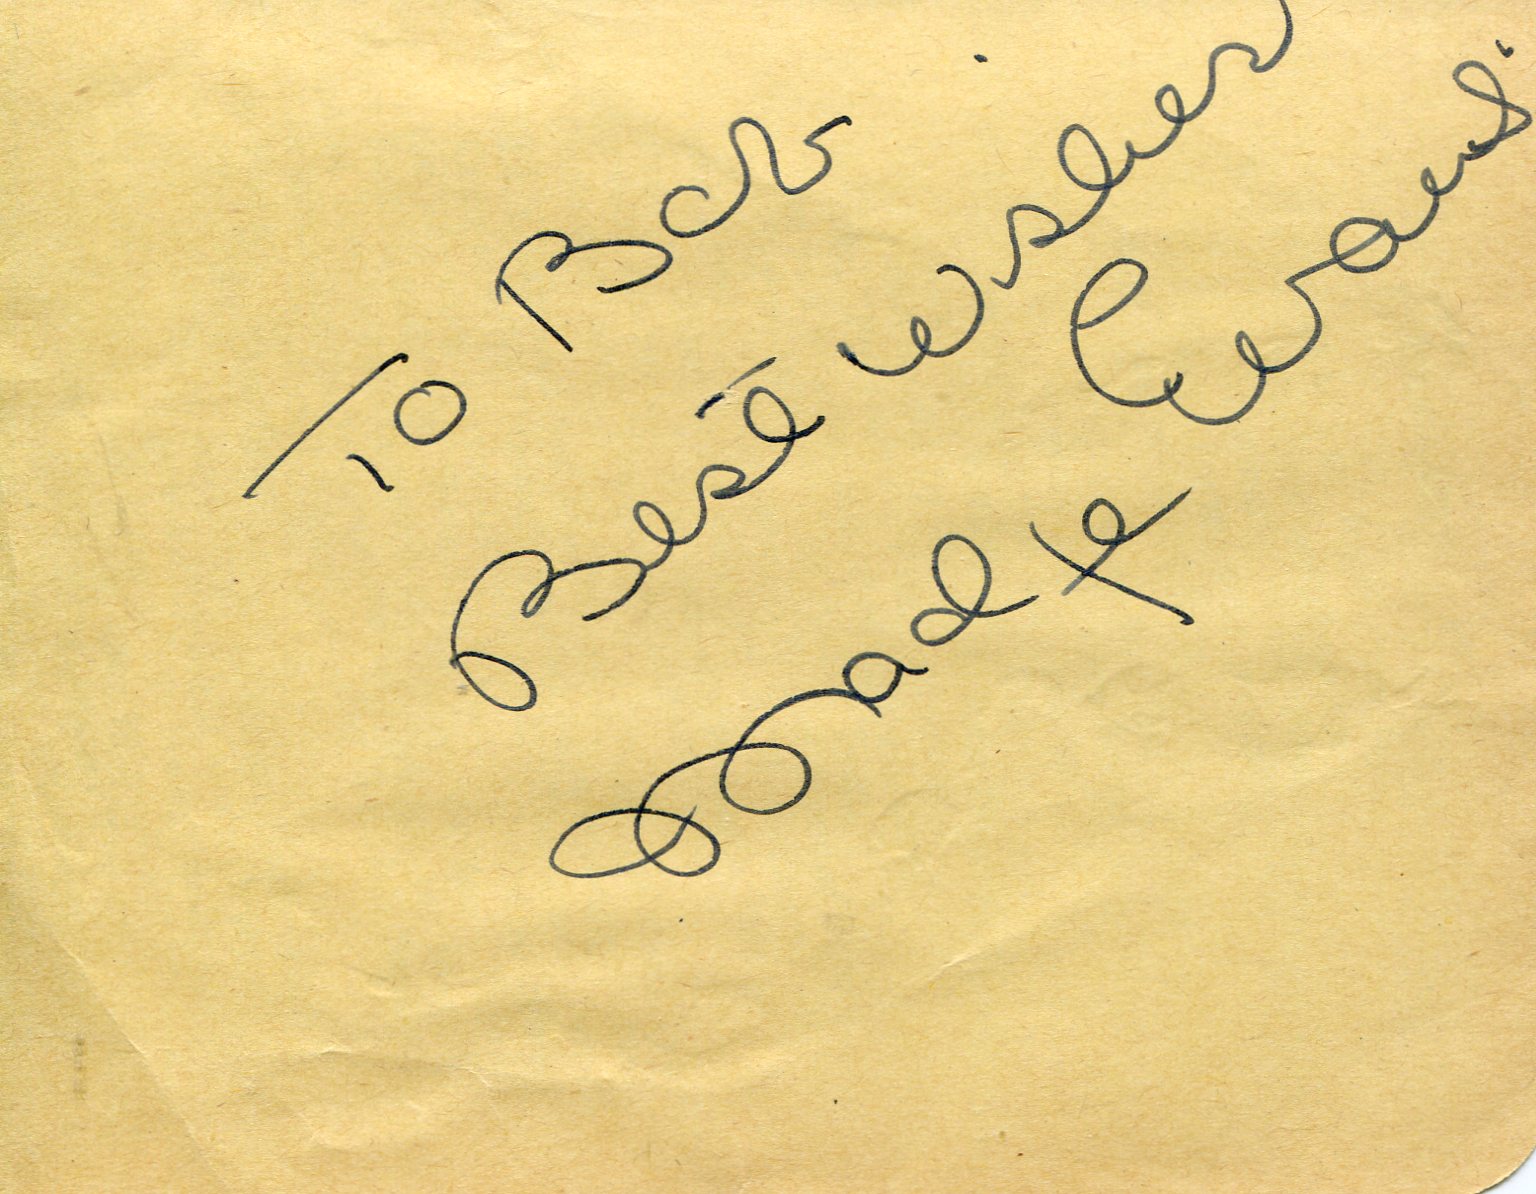 To
Best wishes
Madge Evans.